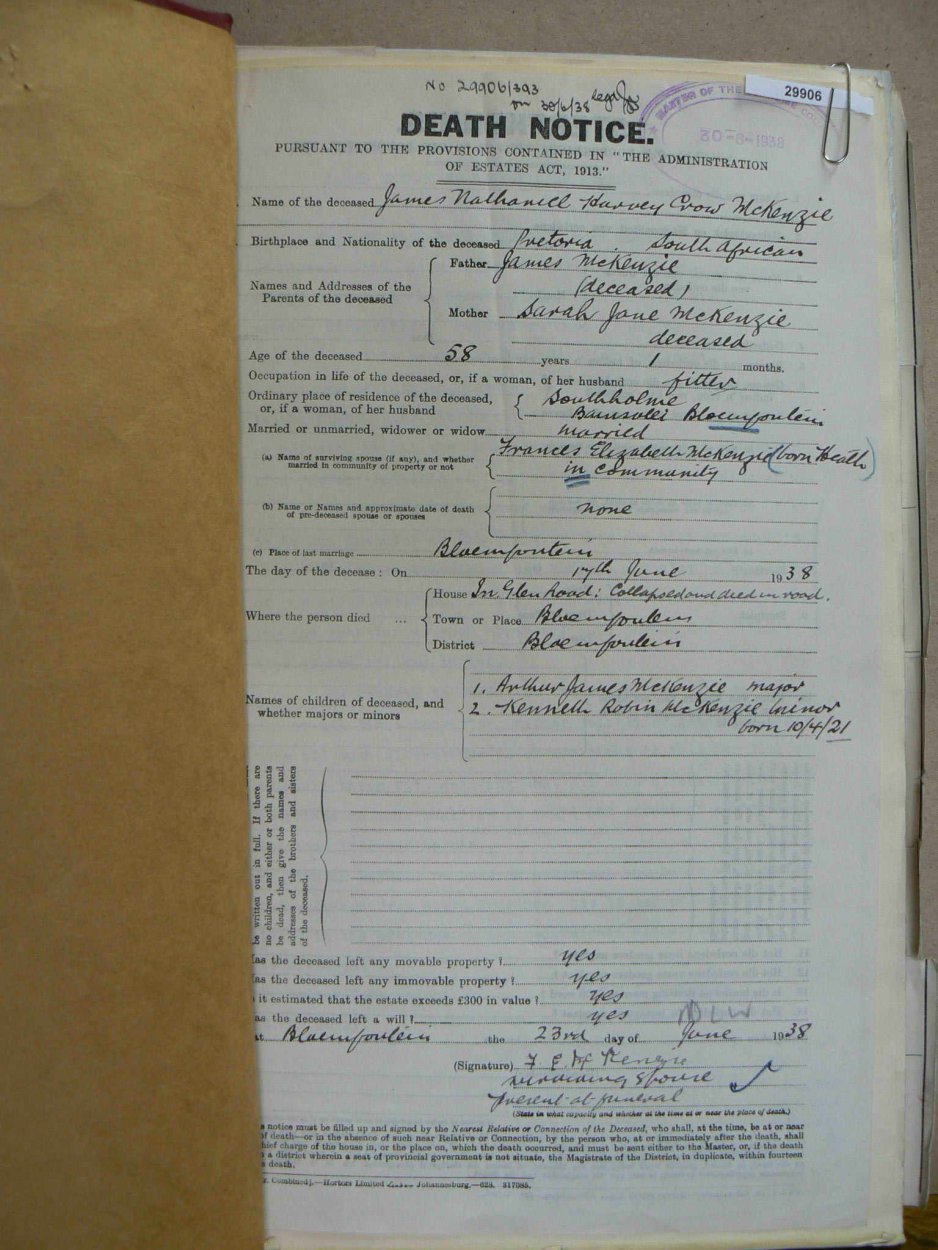 No 29906/393
on 30/6/38
29906
MASTER OF THE
30-6-1938
DEATH NOTICE.
PURSUANT TO THE PROVISIONS CONTAINED IN "THE ADMINISTRATION
OF ESTATES ACT, 1913."
Name of the deceased James Nathaniell Harvey Crow McKenzie
Birthplace and Nationality of the deceased Pretoria. South African
Names and Addresses of the Parents of the deceased
Father James McKenzie
(deceased)
Mother Sarah Jane McKenzie
deceased
Age of the deceased 58 years 1 months.
Occupation in life of the deceased, or, if a woman, of her husband fitter
Ordinary place of residence of the deceased, Southholme
or, if a woman, of her husband Bloemfontein
Married or unmarried, widower or widow married
(a) Name of surviving spouse (if any), and whether Frances Elizabeth McKenzie (born Heath)
married in community of property or not in community
(b) Name or Names and approximate date of death
of pre-deceased spouse or spouses none
(c) Place of last marriage Bloemfontein
The day of the decease: On 17th June 1938
Where the person died ...
House In Glen Road: Collapsed and died in road.
Town or Place Bloemfontein
District Bloemfontein
Names of children of deceased, and
whether majors or minors
1. Arthur James McKenzie major
2. Kenneth Robin McKenzie minor
born 10/4/21
be written out in full. If there are
no children, and either or both parents
be dead, then give the names and
addresses of the brothers and sisters
of the deceased.
as the deceased left any movable property? yes
as the deceased left any immovable property? yes
it estimated that the estate exceeds £300 in value? yes
as the deceased left a will? yes
at Bloemfontein the 23rd day of June 1938
(Signature) F E McKenzie
surviving spouse
present at funeral
(State in what capacity and whether at the time at or near the place of death.)
notice must be filled up and signed by the Nearest Relative or Connection of the Deceased, who shall, at the time, be at or near
of death—or in the absence of such near Relative or Connection, by the person who, at or immediately after the death, shall
hief charge of the house in, or the place on, which the death occurred, and must be sent either to the Master, or, if the death
a district wherein a seat of provincial government is not situate, the Magistrate of the District, in duplicate, within fourteen
death.
Combined].—Hortors Limited Johannesburg.—628. 317085.